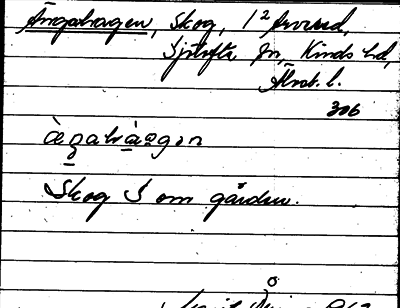 Ängahagen, Skog, 1² Arvered,
Sjötofta sn, Kinds hd,
Älvsb. l.
306
Skog S om gården.